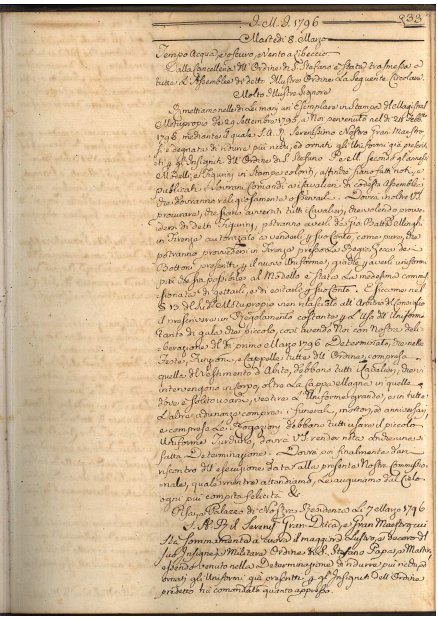 A. M. D. 1796
233
Martedì 8. Marzo
Tempo Acqua, e oscuro, e Vento a Libeccio
Dalla Cancelleria dell'Ordine di S. Stefano è stata trasmessa a
tutte le Assemblee di detto Illustre Ordine la seguente Circolare
Molto Illustre Signore
Rimettiamo nelle di Lei mani un'Esemplare in Stampa del Magistral
Motuproprio de' 29. Settembre 1795, a Noi pervenuto nel dì 24 Febb.
1796, mediante il quale S. A. R. Serenissimo Nostro Gran Maestro
si è degnata di ridurre più ricchi, ed ornati gli Uniformi già prescrit-
ti, e gl'Insigniti dell'Ordine di S. Stefano P. e M. secondo gl'annessi
Modelli, e Figurini in stampe coloriti, affinché siano fatti noti, e
pubblicati i Sovrani Comandi ai Cavalieri di codesta Assemblea
che dovranno religiosamente osservarli. Dovrà inoltre VS.
procurare, che siano avvertiti tutti i Cavalieri, che volendo provve-
dersi di detti Figurini, potranno averli da Gio. Batta
in Firenze autorizzato a venderli per suo conto, come pure, che
potranno provvedersi in Firenze presso la Regia Zecca dei
Bottoni prescritti per il nuovo Uniforme, giacché per averli uniformi
più che sia possibile al Modello è stata la medesima commis-
sionata di gettarli, e di esitarli per suo conto. E siccome nel
§ 13. del sud.° Motuproprio vien rilasciato all'Arbitrio del Consiglio
il prescrivere un Regolamento costante per l'uso dell'Uniforme
tanto di gala che piccolo, così avendo Noi con Nostra deli-
berazione del dì primo Marzo 1796 Determinato, che nelle
Feste, Funzioni, e Cappelle tutte dell'Ordine, compresa
quella del Vestimento d'Abito, debbano tutti i Cavalieri, che v'
intervengono in Corpo, oltre la Cappa Magna in quelle
dove è solito usarsi, vestire l'Uniforme grande, e in tutte
l'altre adunanze compresi i Funerali, mortorj, o anniversarj,
e comprese le Rogazioni debbano tutti usare il piccolo
Uniforme Turchino, dovrà VS render nota anche una
fatta Determinazione. Dovrà poi finalmente dar
riscontro dell'esecuzione data alla presente Nostra Commissio-
nale, quale mentre attendiamo, Le auguriamo dal Cielo
ogni più compita felicità &c.
Pisa, Palazzo di Nostra Residenza Lì 7 Marzo 1796
S. A. R. il Serenis. Gran Duca, e Gran Maestro cui
sta sommamente a cuore il maggior lustro, e decoro del
suo Insigne, e Militare Ordine di S. Stefano Papa, e Martire,
essendo venuto nella Determinazione di ridurre più ricchi, ed
ornati gli Uniformi già prescritti per gl'Insigniti dell'Ordine
predetto ha comandato quanto appresso.